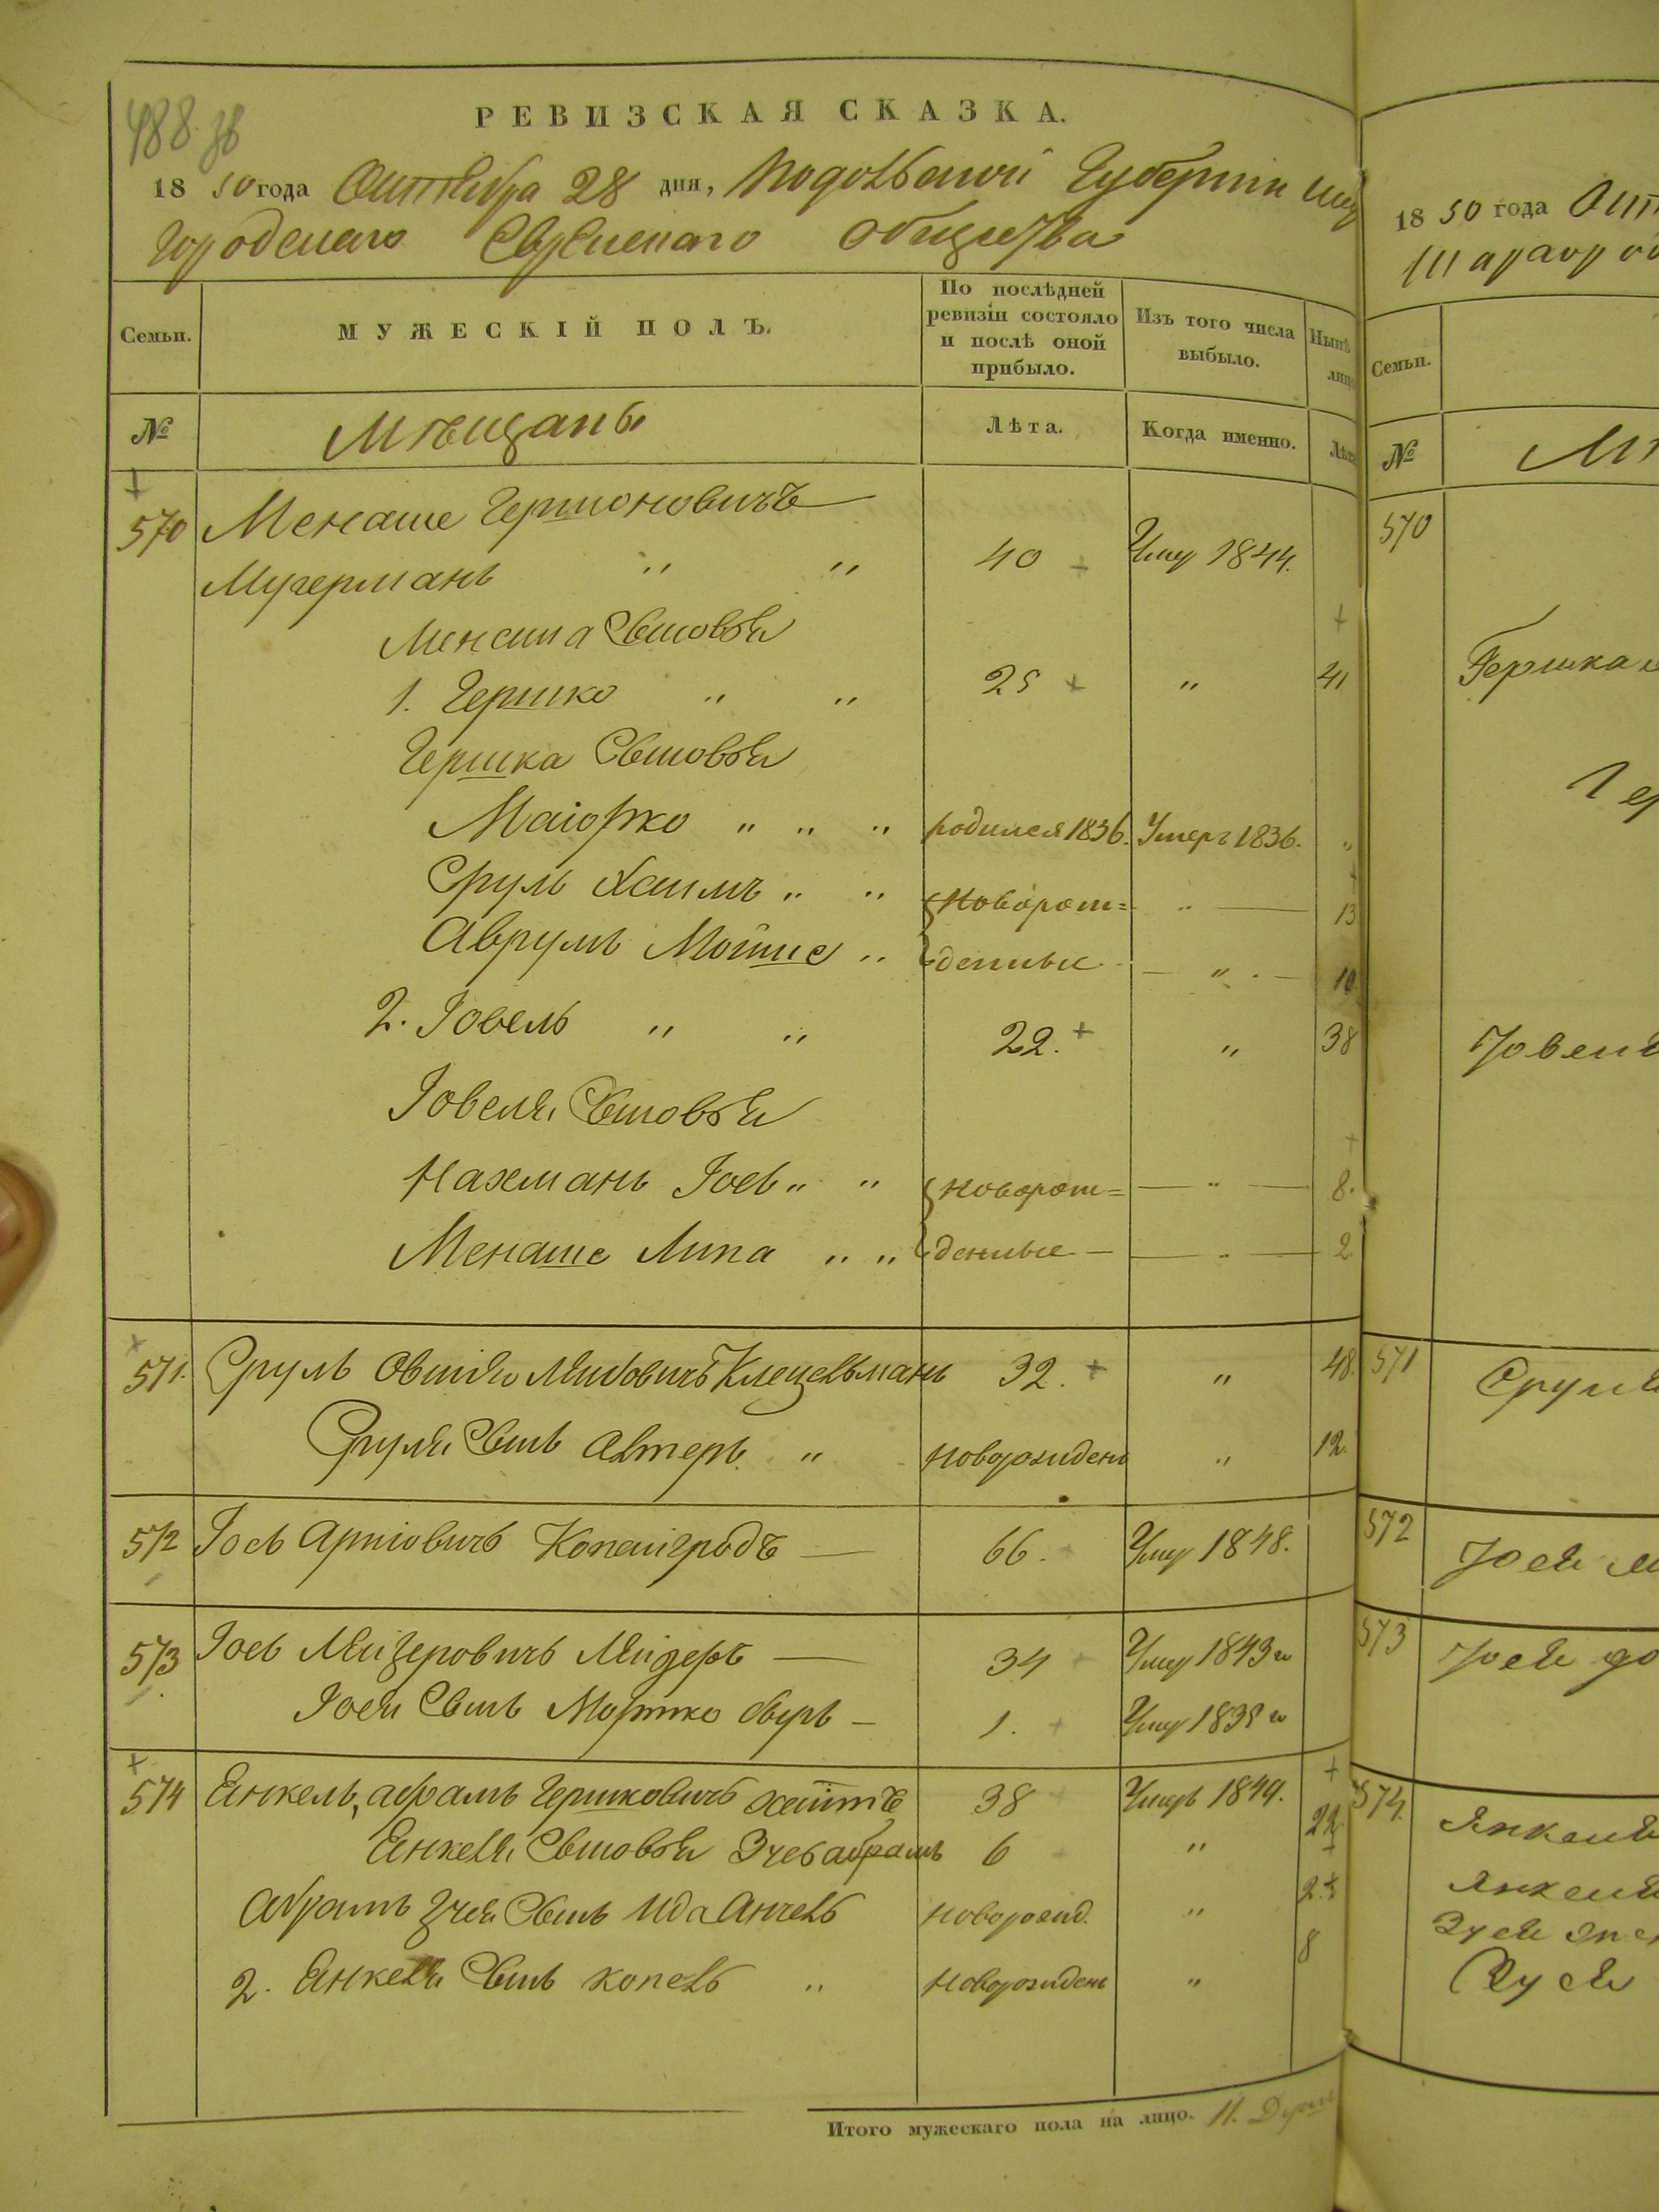 488 зв
РЕВИЗСКАЯ СКАЗКА.
18 50 года Октября 28 дня, Подольской Губернии
городскаго Еврейскаго общества
Семьи.
МУЖЕСКІЙ ПОЛЪ.
По послѣдней ревизіи состояло и послѣ оной прибыло.
Изъ того числа выбыло.
Нынѣ
№
Мѣщанъ
Лѣта.
Когда именно.
Лѣта
570 Менаше Гершоновичъ
Мучерманъ " " 40 Уме 1844.
Менаша Сыновья
1. Гершко " " 25 " 41
Гершка Сыновья
Маіорко " " " родился 1836. Умеръ 1836. "
Сруль Хаимъ " " Новорож= " 13
Аврумъ Мойше " денные " 10
2. Іовель " " 22. " 38
Іовеля Сыновья
Нахманъ Іось " " новорож= " 8.
Менаше Липа " " денные " 2
571. Сруль Овшія Лейбовичъ Клецельманъ 32. " 48.
Сруля Сынъ Алтеръ " новорожденъ " 12.
572 Іось Аріовичъ Копайгродъ 66. Уме 1848.
573 Іось Лейзеровичъ 34 Уме 1843 г
Іося Сынъ Мортко 1. Уме 1835 г
574 Янкель, абрамъ Гершковичъ 38 Умеръ 1849.
Янкеля Сыновья абрамъ 6 " 22
Абрамъ Сынъ Ида Анчель новорожд. " 2
2. Янкеля Сынъ Копель " Новорожденъ " 8
Итого мужескаго пола на лицо. 11. Душъ
18 50 года
Семьи.
№
570
Гершка
Іовеля
571 Сруля
572 Іося
573 Іося
574. Янкеля
Янкеля